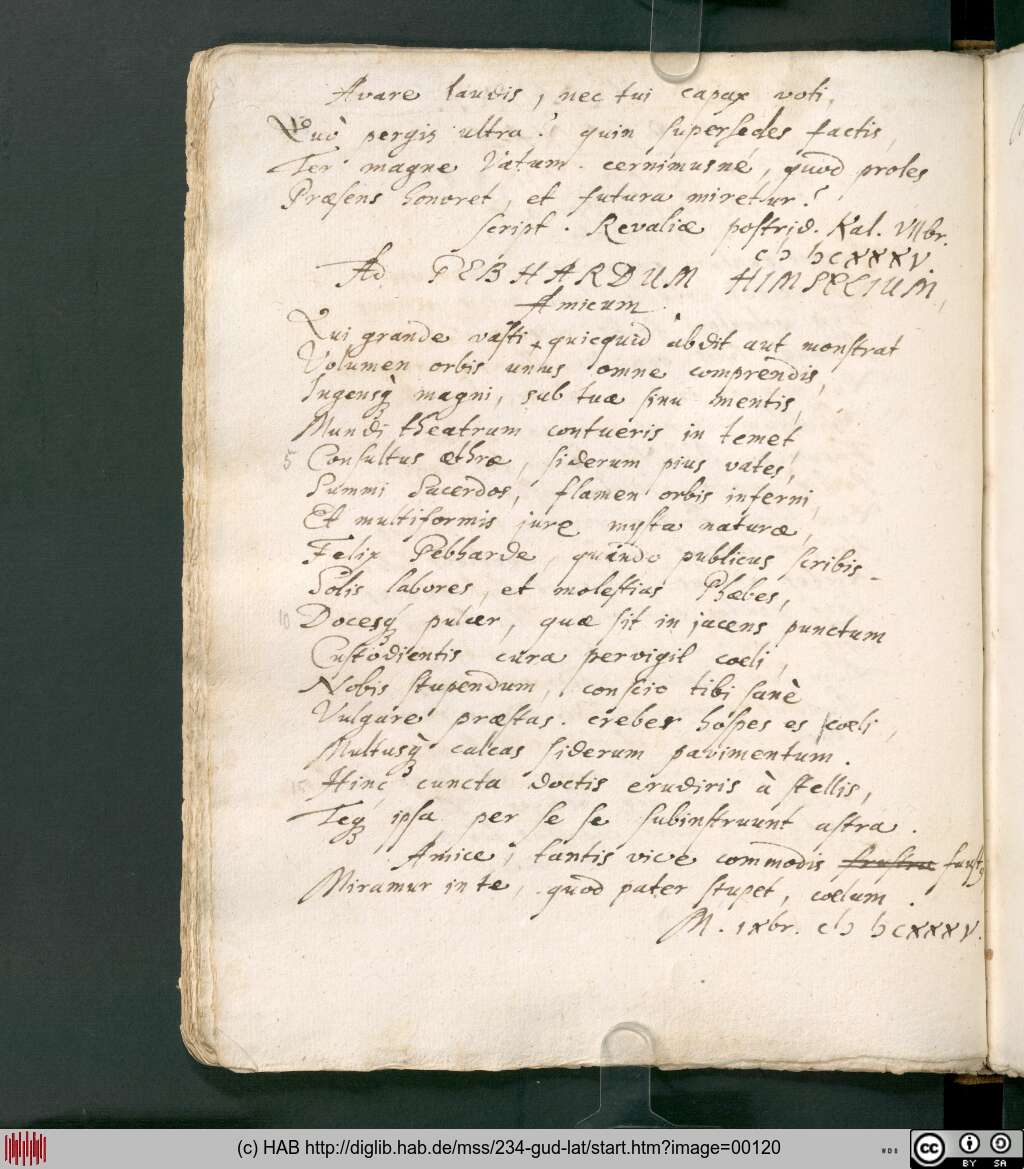 Avare laudis, nec tui capax voti,
10
Quò pergis ultra? quin supersedes factis,
Ter magne Vatum. cernimusne, quod proles
Præsens honoret, et futura miretur?
script. Revaliæ postrid. Kal. VIIbr.
cIɔ Iɔ cXXXV.
Ad GEBHARDUM HIMSELIUM,
Amicum.
Qui grande vasti, quicquid abdit aut monstrat
Volumen orbis unus omne comprendis,
Ingensq; magni, sub tuæ sinu mentis,
Mundi theatrum contueris in temet
5 Consultus æthræ, siderum pius vates,
Summi Sacerdos, flamen orbis inferni,
Et multiformis jure mysta naturæ,
Felix Gebharde, quando publicus scribis
Solis labores, et molestias Phœbes,
10 Docesq; pulcer, quæ sit in jacens punctum
Custodientis cura pervigil cœli,
Nobis stupendum, conscio tibi sanè
Vulgare præstas. creber hospes es cœli,
Multusq; calcas siderum pavimentum.
15 Hinc cuncta doctis erudiris à stellis,
Teq; ipsa per se se subinstruunt astra.
Amice, tantis vive commodis frustra
Miramur in te, quod pater stupet, cœlum.
M. IXbr. cIɔ Iɔ cXXXV.
(c) HAB http://diglib.hab.de/mss/234-gud-lat/start.htm?image=00120
WDB
cc BY SA